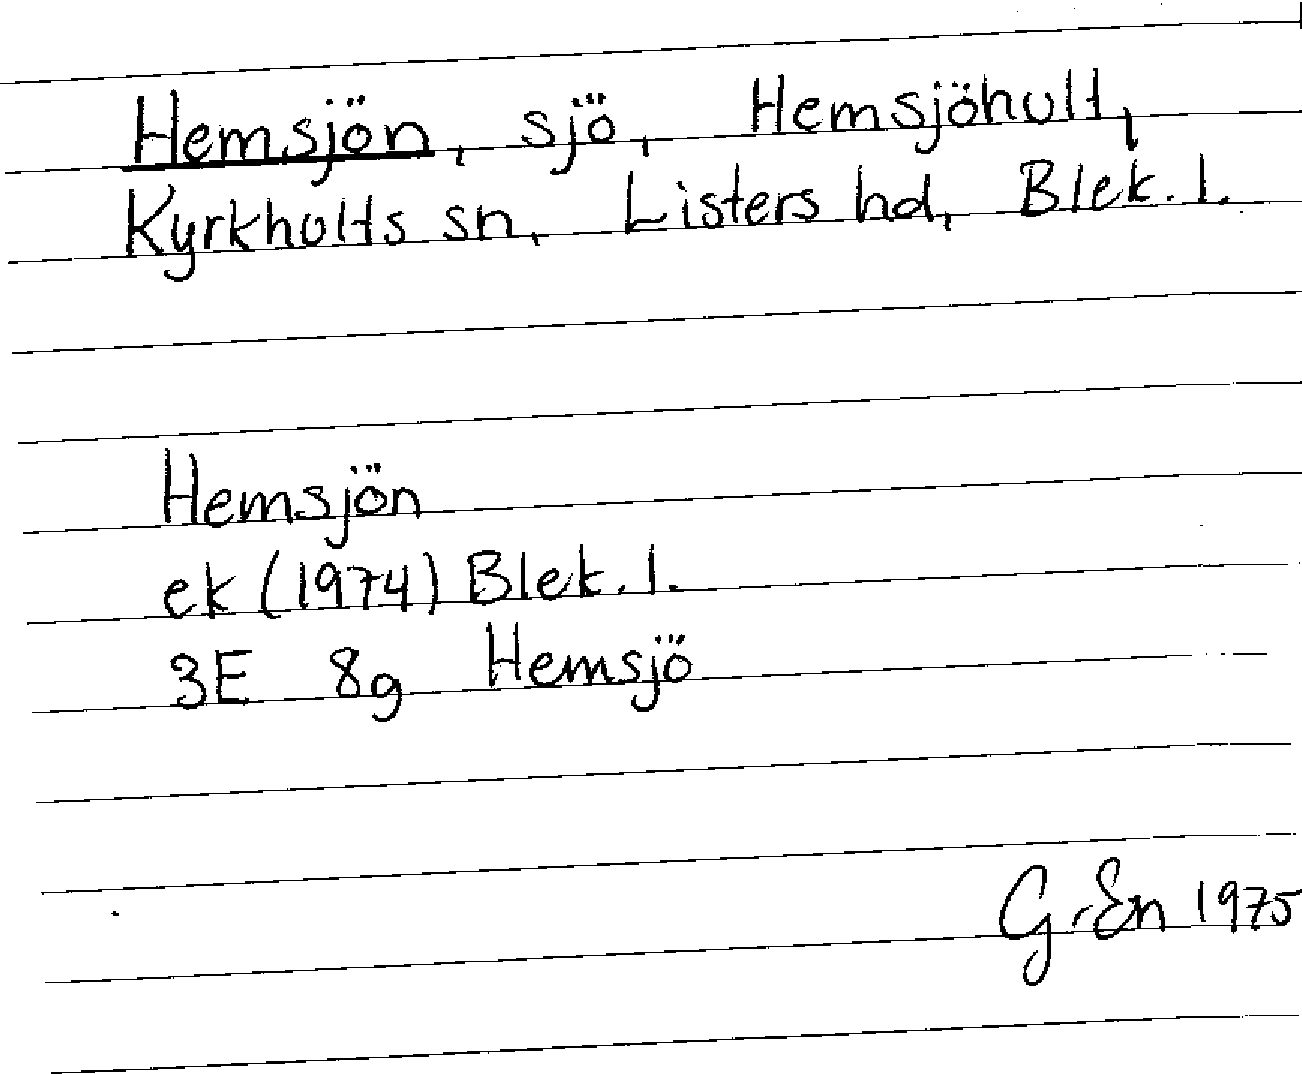 Hemsjön, sjö, Hemsjöhult,
Kyrkhults sn, Listers hd, Blek. l.
Hemsjön
ek (1974) Blek. l.
3E 8g Hemsjö
G. En 1975